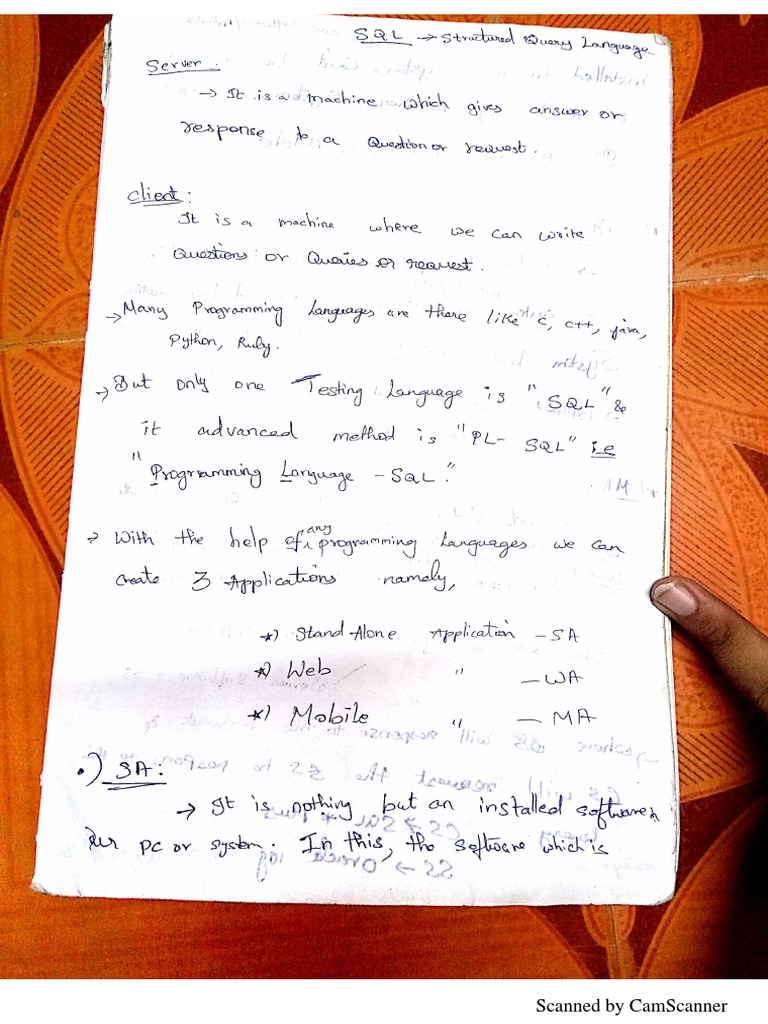 SQL → Structured Query Language
Server :
→ It is a machine which gives answer or
response to a Question or request.
Client :
It is a machine where we can write
Questions or Queries or request.
→ Many Programming Languages are there like C, C++, java,
Python, Ruby.
→ But only one Testing Language is "SQL" &
it advanced method is "PL- SQL" i.e
"Programming Language - SQL."
→ With the help of any programming Languages we can
create 3 Applications namely,
*) Stand-Alone Application - SA
*) Web " - WA
*) Mobile " - MA
•) SA :
→ It is nothing but an installed software in
our PC or system. In this, the software which is
Scanned by CamScanner